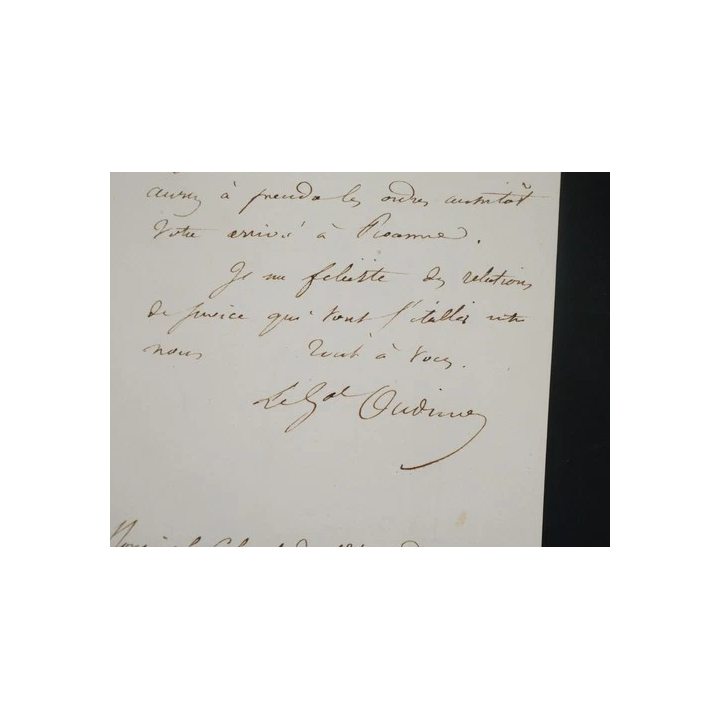 aurez à prendre les ordres aussitôt
votre arrivé à Roanne.
Je me félicite des relations
de service qui vont s'établir entre
nous Tout à vous.
Le Gal Oudinot